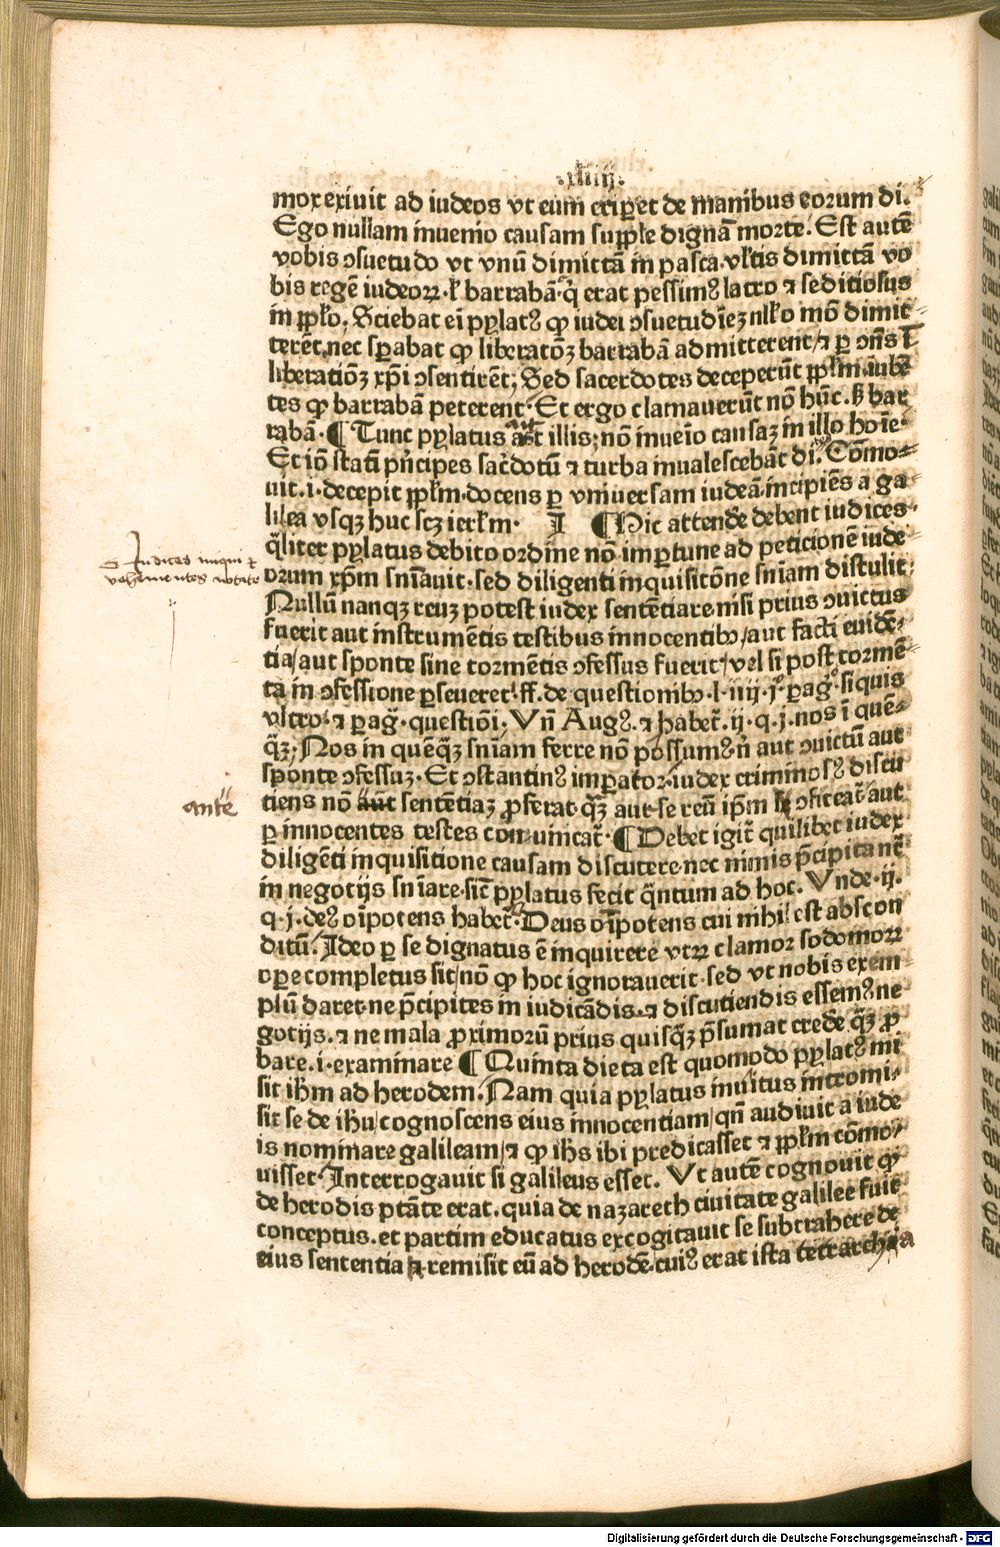 .xliiij.
mox exiuit ad iudeos vt eum eriꝑet de manibus eorum di.
Ego nullam inuenio causam supple dignā morte. Est autē
vobis ꝯsuetudo vt vnū dimittā in pasca. vltis dimittā vo
bis regē iudeoꝝ. ł barrabā. q̇ erat pessimꝰ latro ⁊ seditiosus
in pplo. Sciebat ei pylatꝰ ꝙ iudei ꝯsuetudīeȝ nllo mō dimit⸗
terēt. nec sꝑabat ꝙ liberatōȝ barrabā admitterent/ ⁊ ꝑ ꝯn̄s ī
liberatiōȝ xp̄i ꝯsentirēt; Sed sacerdotes deceperūt pplm̄ iubē
tes ꝙ barrabā peterent. Et ergo clamauerūt nō hūc. sꝫ bar
rabā. ¶ Tunc pylatus ast illis; nō inueīo causaȝ in illo hoīe.
Et iō statī pn̄cipes sac̄dotū ⁊ turba inualescebāt di. Cōmo⸗
uit .i. decepit pplm̄. docens ꝑ vniuersam iudeā. incipiēs a ga
lilea vsqȝ huc scȝ ierlm̄. I ¶ Hic attendē debent iudices.
q̄liter pylatus debito ordine nō imꝑtune ad peticionē iude
orum xp̄m sn̄iauit. sed diligenti inquisitōne sn̄iam distulit;
Nullū nanqȝ reuȝ potest iudex sentētiare nisi prius ꝯuictus
fuerit aut instrumētis testibus innocentibꝰ/ aut facti euidē⸗
tia/ aut sponte sine tormētis ꝯfessus fuerit/ vel si post tormē⸗
ta in ꝯfessione ꝑseueret. ff. de questionibꝰ. l. iiij. j. ꝑag̊. siquis
vltro. ⁊ ꝑag̊. questiōi. Vn̄ Augꝰ. ⁊ habet̄. ij. q. j. nos ī quē⸗
q̄ȝ. Nos in quēq̄ȝ sn̄iam ferre nō possumꝰ n̄ aut ꝯuictū aut
sponte ꝯfessuȝ. Et ꝯstantinꝰ imꝑator. iudex criminosꝰ discu
tiens nō aūt sentētiaȝ ꝓferat. q̄ȝ aut se reū ip̄m ꝯfiteat̄ aut
ꝑ innocentes testes conuincat̄. ¶ Debet igit̄ quilibet iudex
diligēti inquisitione causam discutere. nec nimis p̄cipitant̄
in negotijs sn̄iare. sic̄ pylatus fecit q̄ntum ad hoc. Vnde .ij.
q. j. deꝰ oīpotens habet̄. Deus oīpotens cui nihil est abscon
ditū. Ideo ꝑ se dignatus ē inquirere vtꝝ clamor sodomoꝝ
oꝑe completus sit/ nō ꝙ hoc ignorauerit. sed vt nobis exem
plū daret. ne p̄cipites in iudicādis. ⁊ discutiendis essemꝰ ne
gotijs. ⁊ ne mala ꝓximorū prius quisq̄ȝ p̄sumat credē q̄ȝ ꝓ
bare .i. examinare ¶ Quinta dieta est quomodo pylatꝰ mi
sit ihm̄ ad herodem. Nam quia pylatus inuitus intromi⸗
sit se de ihū/ cognoscens eius innocentiam/ qn̄ audiuit a iude
is nominare galileam/ ⁊ ꝙ ihs ibi predicasset ⁊ pplm̄ cōmo⸗
uisset. Interrogauit si galileus esset. Vt autē cognouit ꝙ
de herodis ptāte erat. quia de nazareth ciuitate galilee fuit
conceptus. et partim educatus excogitauit se subtrahere de
eius sententia ⁊ remisit eū ad herodē. cuiꝰ erat ista tetrarchia
Iudices iniqui et
vehementes notate
ante
Digitalisierung gefördert durch die Deutsche Forschungsgemeinschaft - DFG